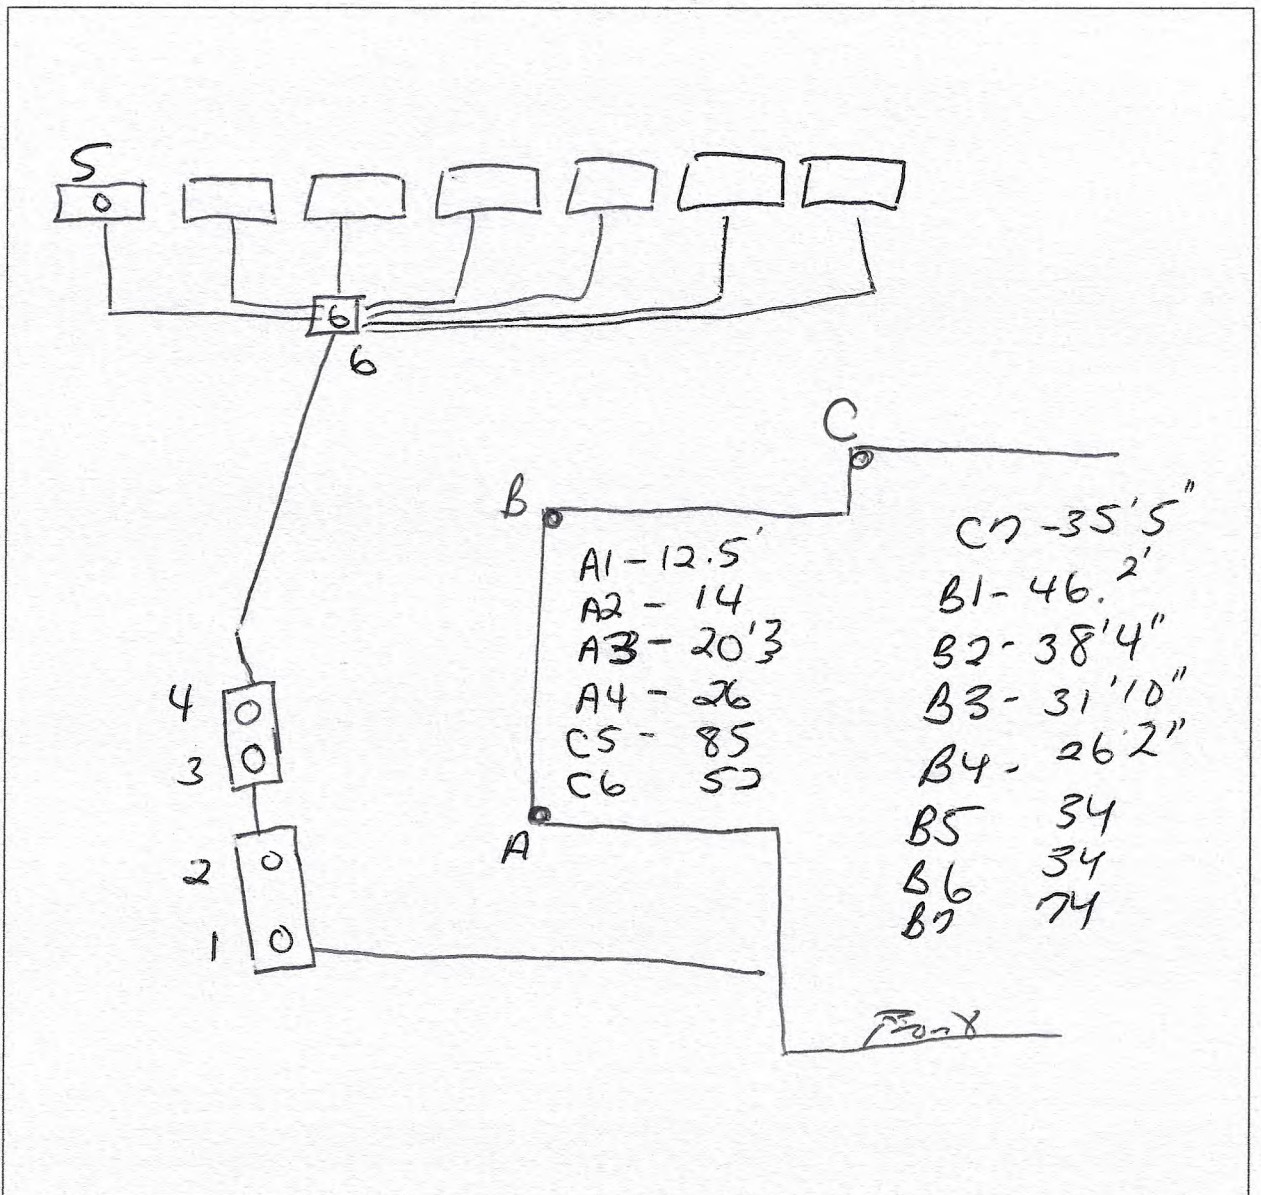 5
6
6
C
B
A1 - 12.5'
A2 - 14
A3 - 20'3
A4 - 26
C5 - 85
C6 57
C7 - 35'5"
B1 - 46.2'
B2 - 38'4"
B3 - 31'10"
B4 - 26'2"
B5 34
B6 34
B7 74
4
3
A
2
1
Front